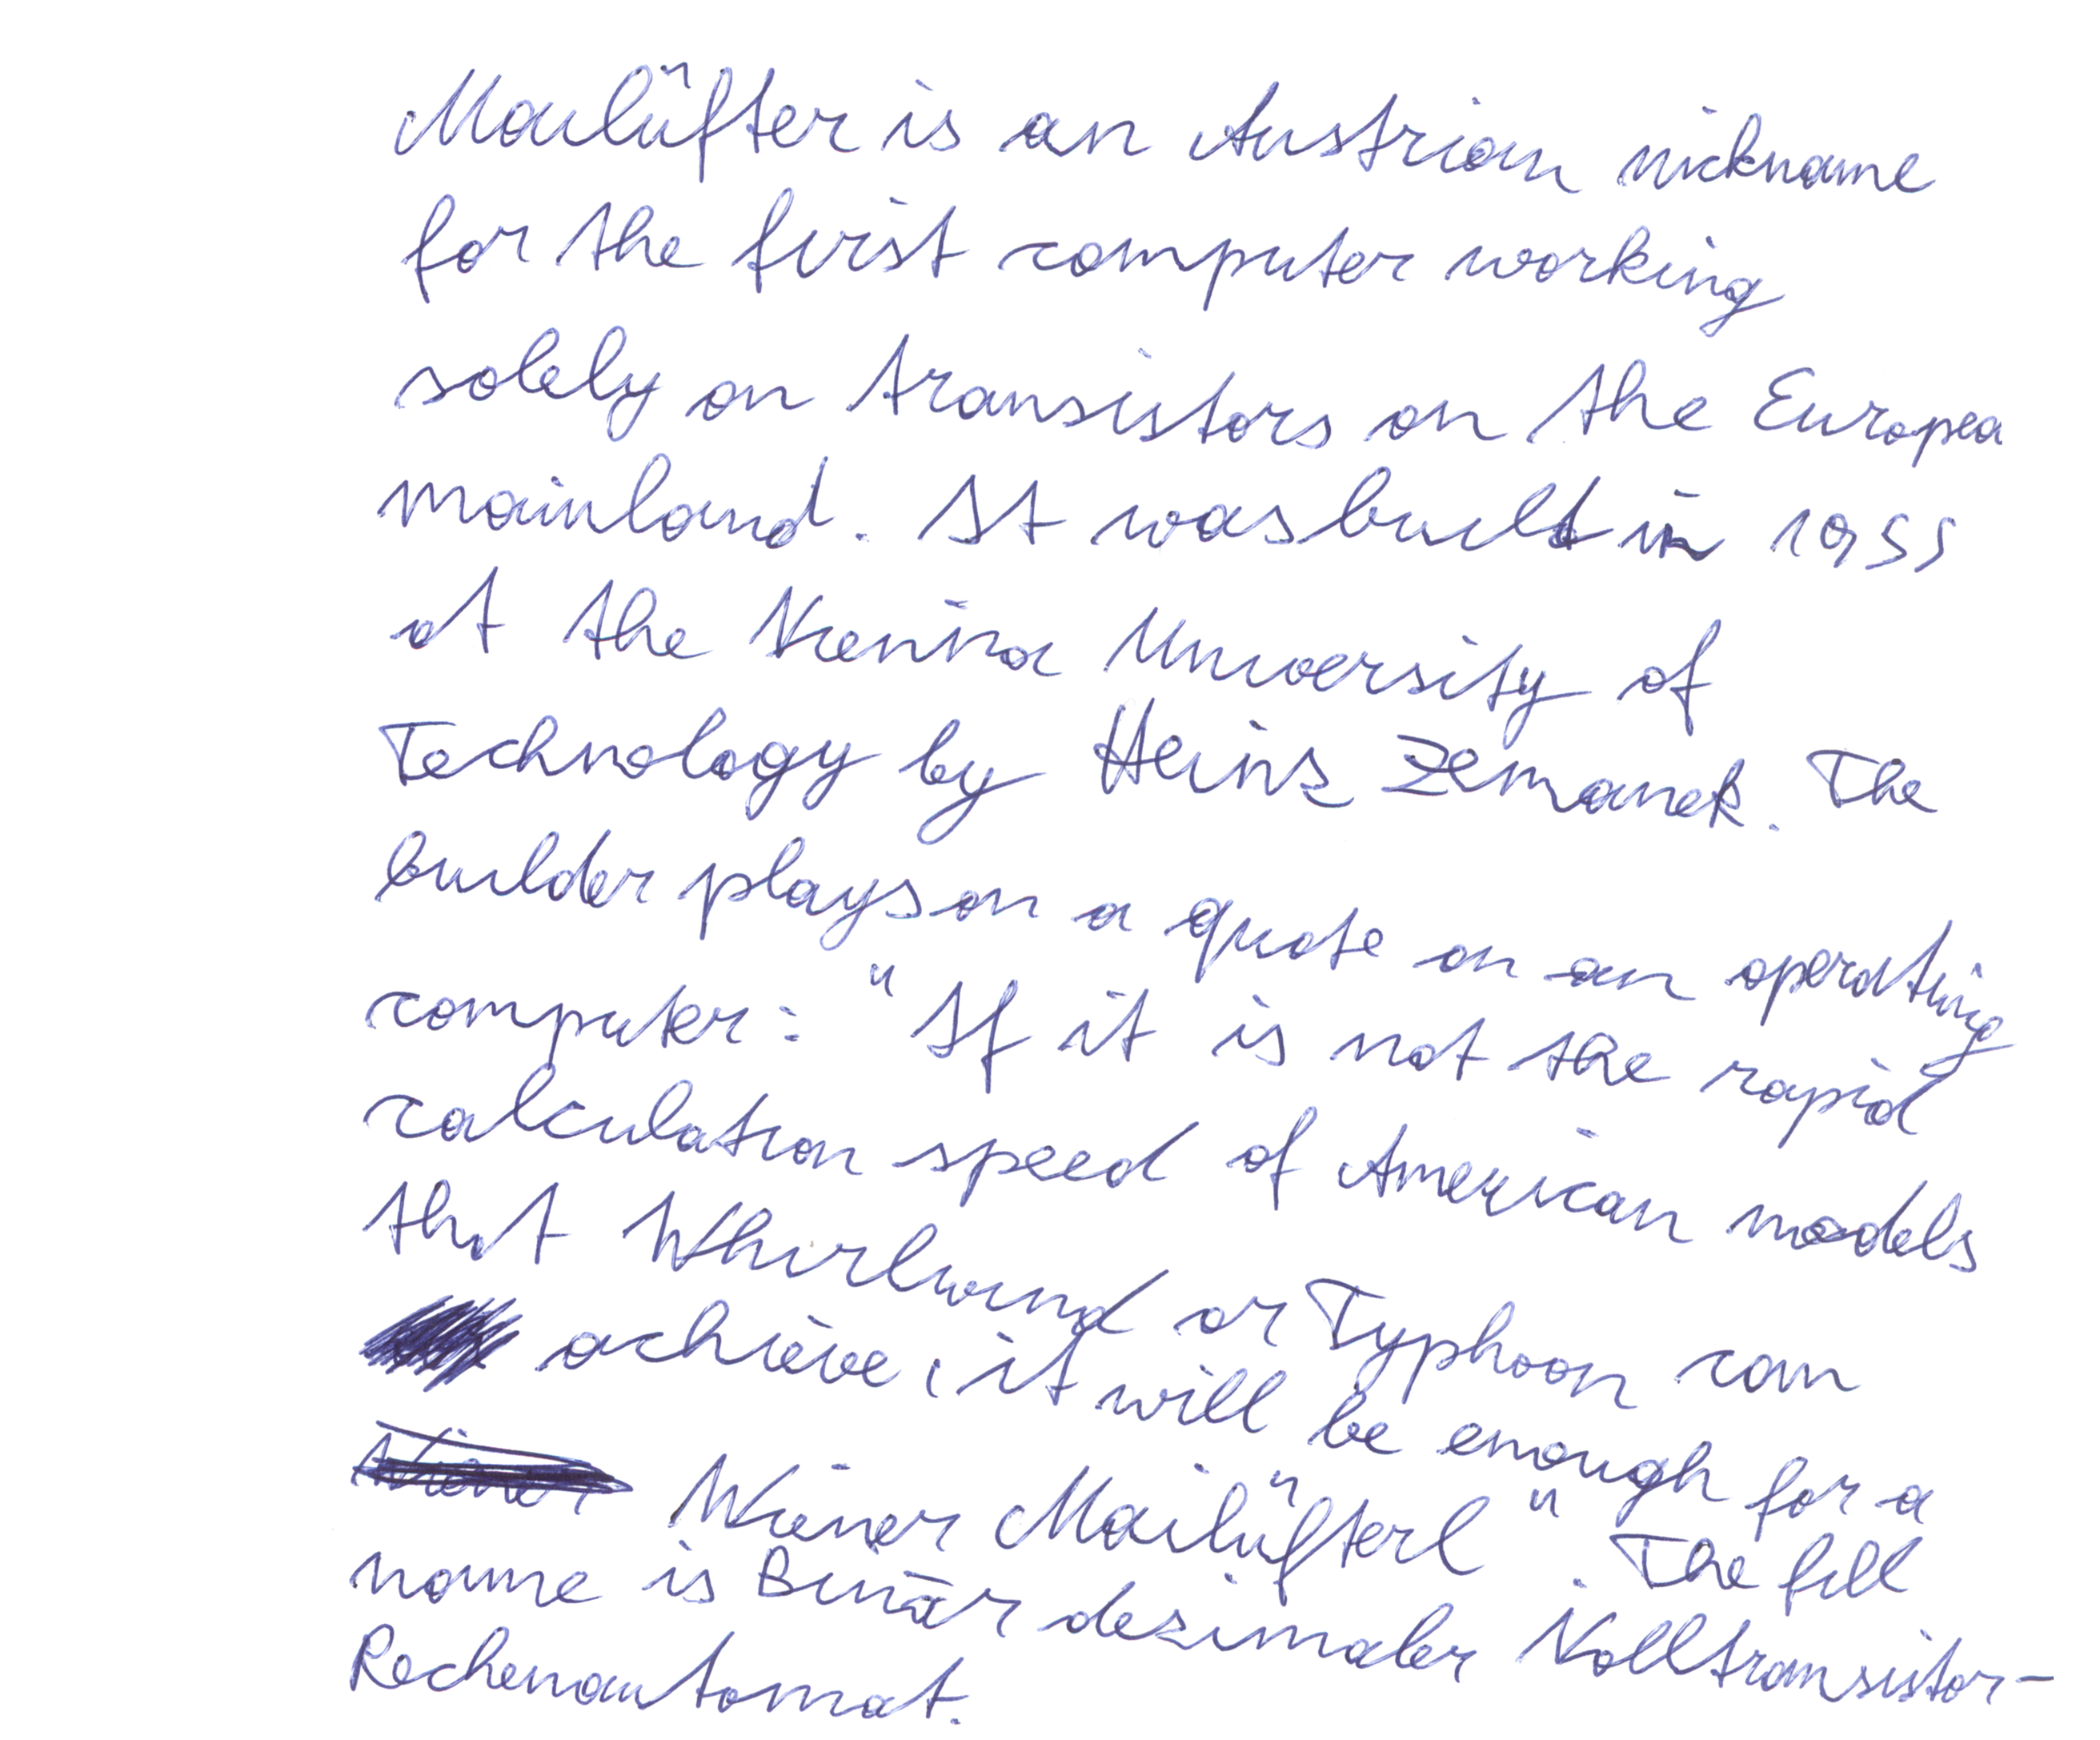 Mailüfter is an Austrian nickname
for the first computer working
solely on transistors on the Europea
mainland. It was built in 1955
at the Vienna University of
Technology by Heinz Zemanek. The
builder plays on a quote on an operating
computer: "If it is not the rapid
calculation speed of American models
that Whirlwind or Typhoon can
achieve, it will be enough for a
Wiener Mailüfterl". The full
name is Binär dezimaler Volltransistor-
Rechenautomat.